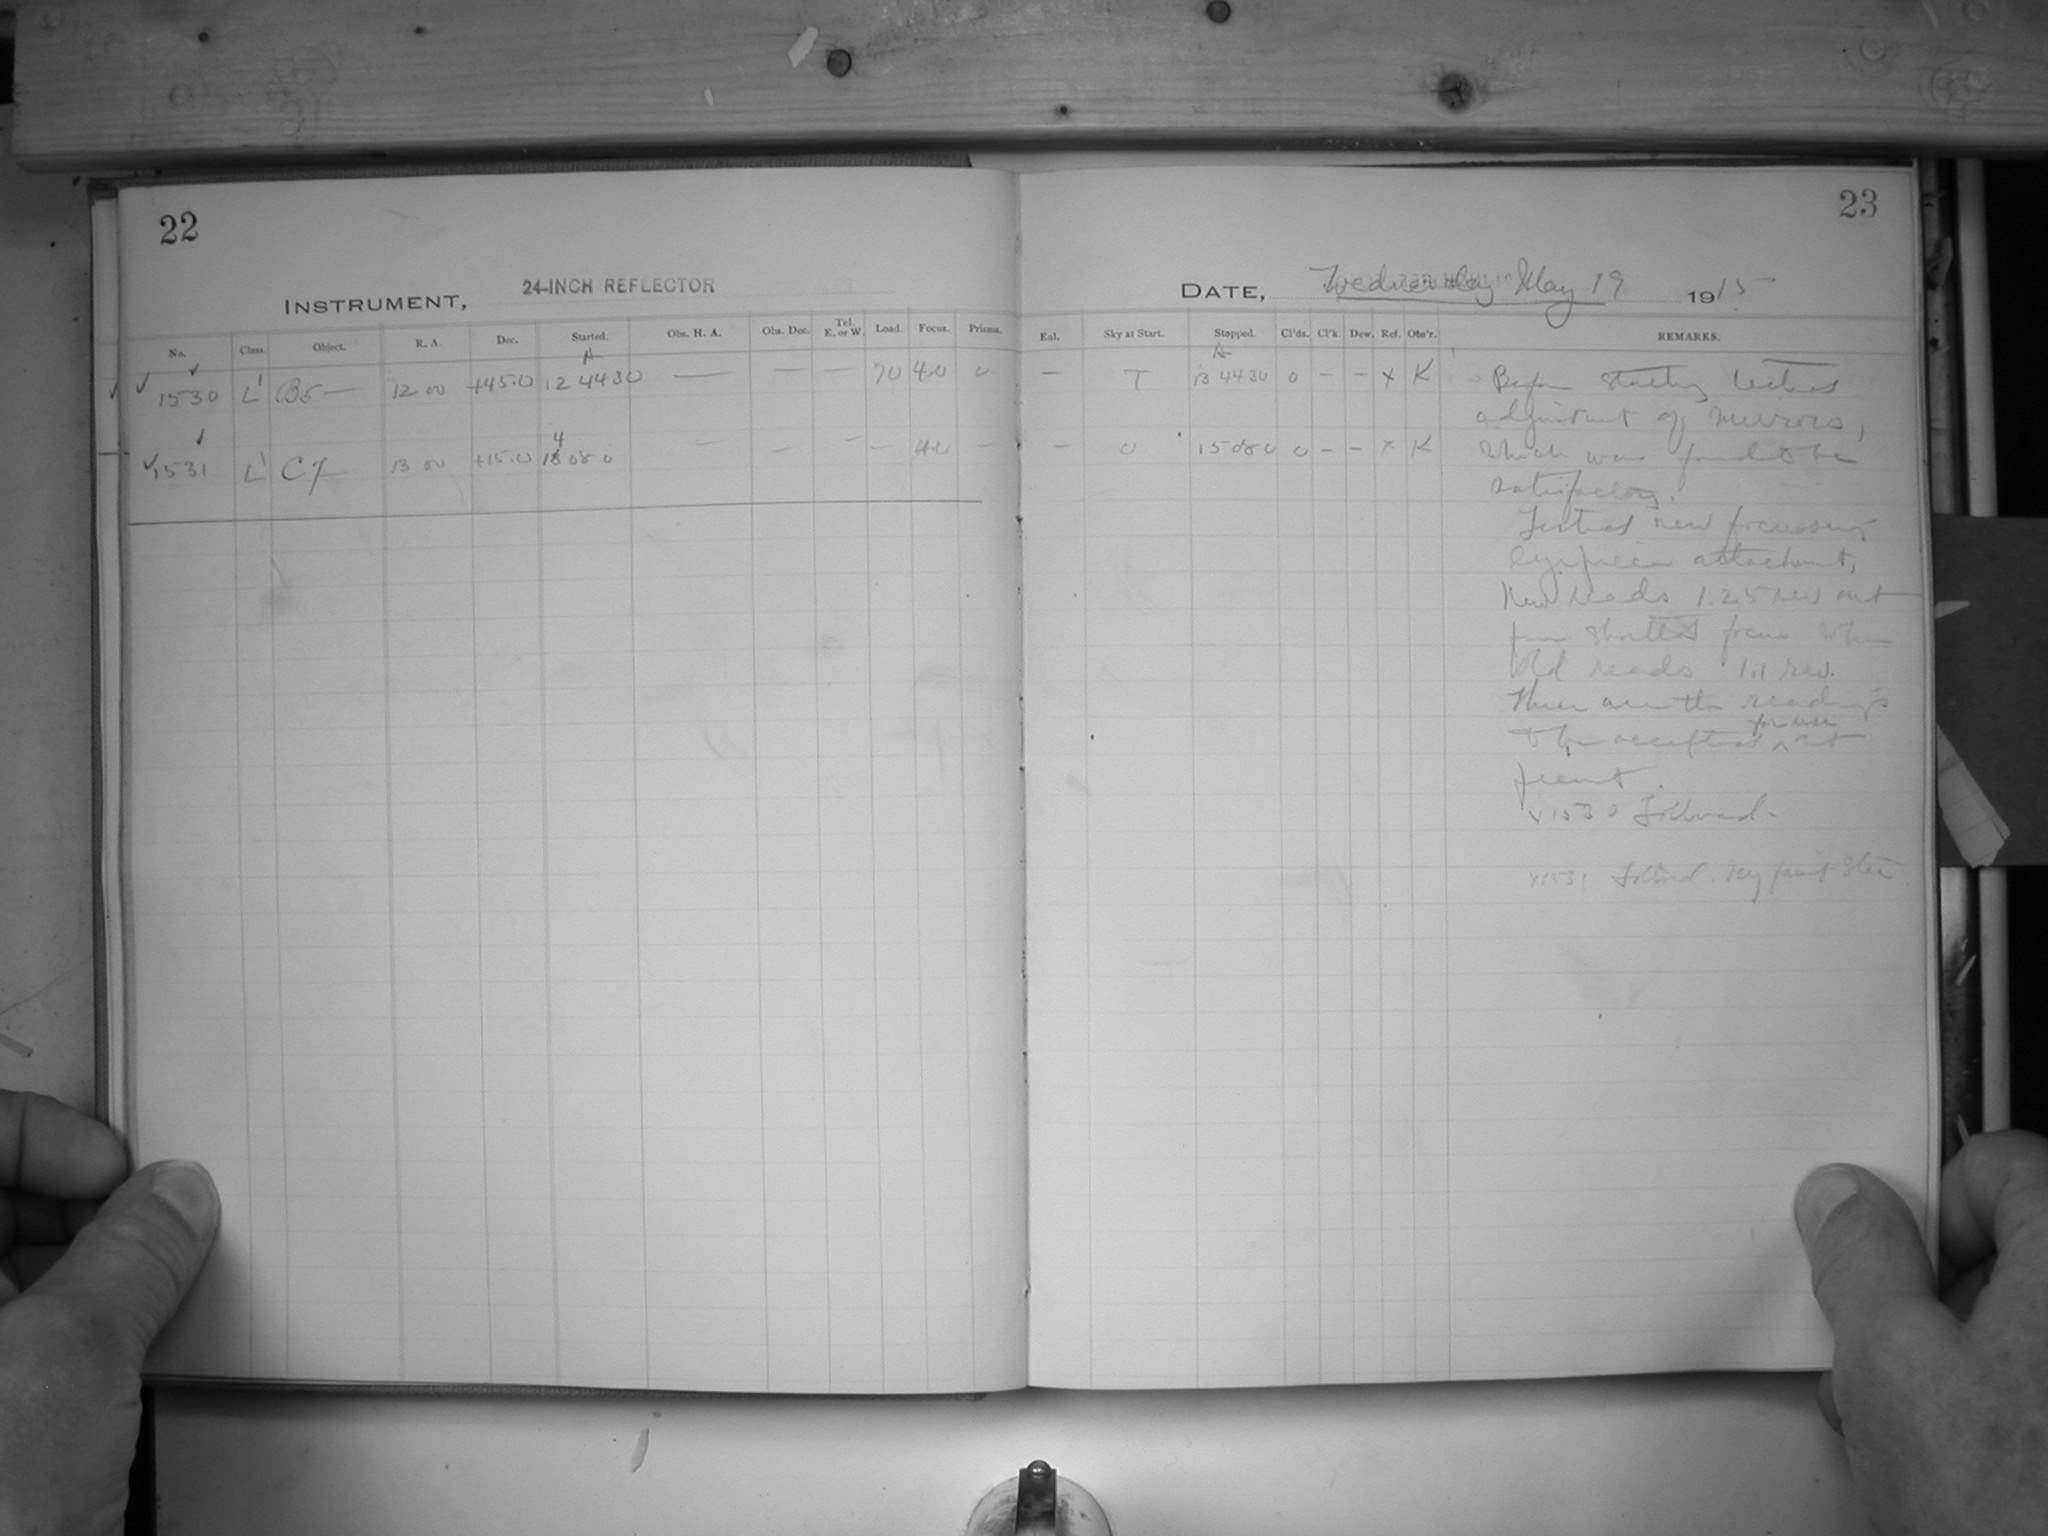 22
INSTRUMENT, 24-INCH REFLECTOR
No. Class. Object. R. A. Dec. Started. Obs. H. A. Obs. Dec. Tel. E. or W. Load. Focus. Prisms.
A
✓ 1530 L' B5 — 12 00 +45.0 12 44 30 — — — 70 4.0 0
✓ 1531 L' C7 — 13 00 +15.0 14 08 0 — — — — 4.0 —
23
DATE, Wednesday May 19 1915
Enl. Sky at Start. Stopped. Cl'ds. Cl'k. Dew. Ref. Obs'r. REMARKS.
A
— T 13 44 30 0 – – x K Before starting tested
adjustment of mirrors,
— 0 15 08 0 0 – – x K which was found to be
satisfactory.
Tested new focussing
eyepiece attachment,
New reads 1.25 rev out
from shortest focus when
Old reads 1.1 rev.
These are the readings
to be accepted for use at
present.
x1530 Followed.
x1531 Followed. Very faint star.